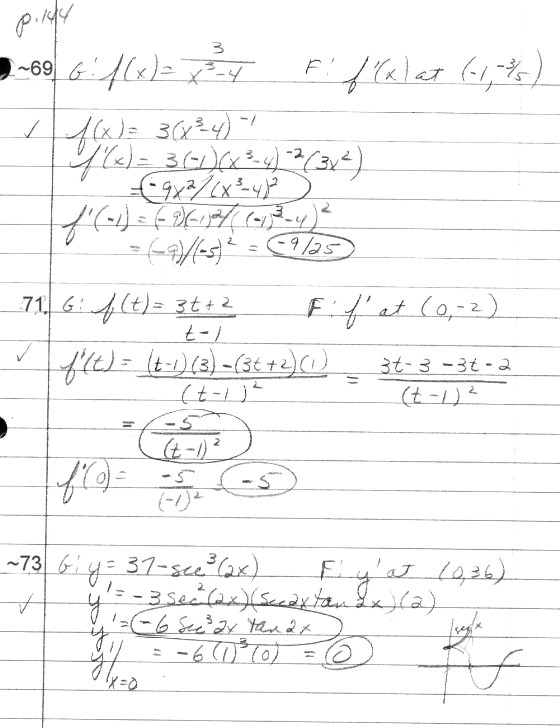 p.144
~69 G: f(x) = 3/(x³-4) F: f'(x) at (-1, -3/5)
✓ f(x) = 3(x³-4)⁻¹
f'(x) = 3(-1)(x³-4)⁻²(3x²)
= -9x²/(x³-4)²
f'(-1) = (-9)(-1)²/((-1)³-4)²
= (-9)/(-5)² = -9/25
71. G: f(t) = (3t+2)/(t-1) F: f' at (0,-2)
✓ f'(t) = ((t-1)(3)-(3t+2)(1))/(t-1)² = (3t-3-3t-2)/(t-1)²
= -5/(t-1)²
f'(0) = -5/(-1)² = -5
~73 G: y = 37-sec³(2x) F: y' at (0,36)
✓ y' = -3sec²(2x)(sec2x tan2x)(2)
y' = -6 sec³2x tan2x
y'|x=0 = -6(1)³(0) = 0